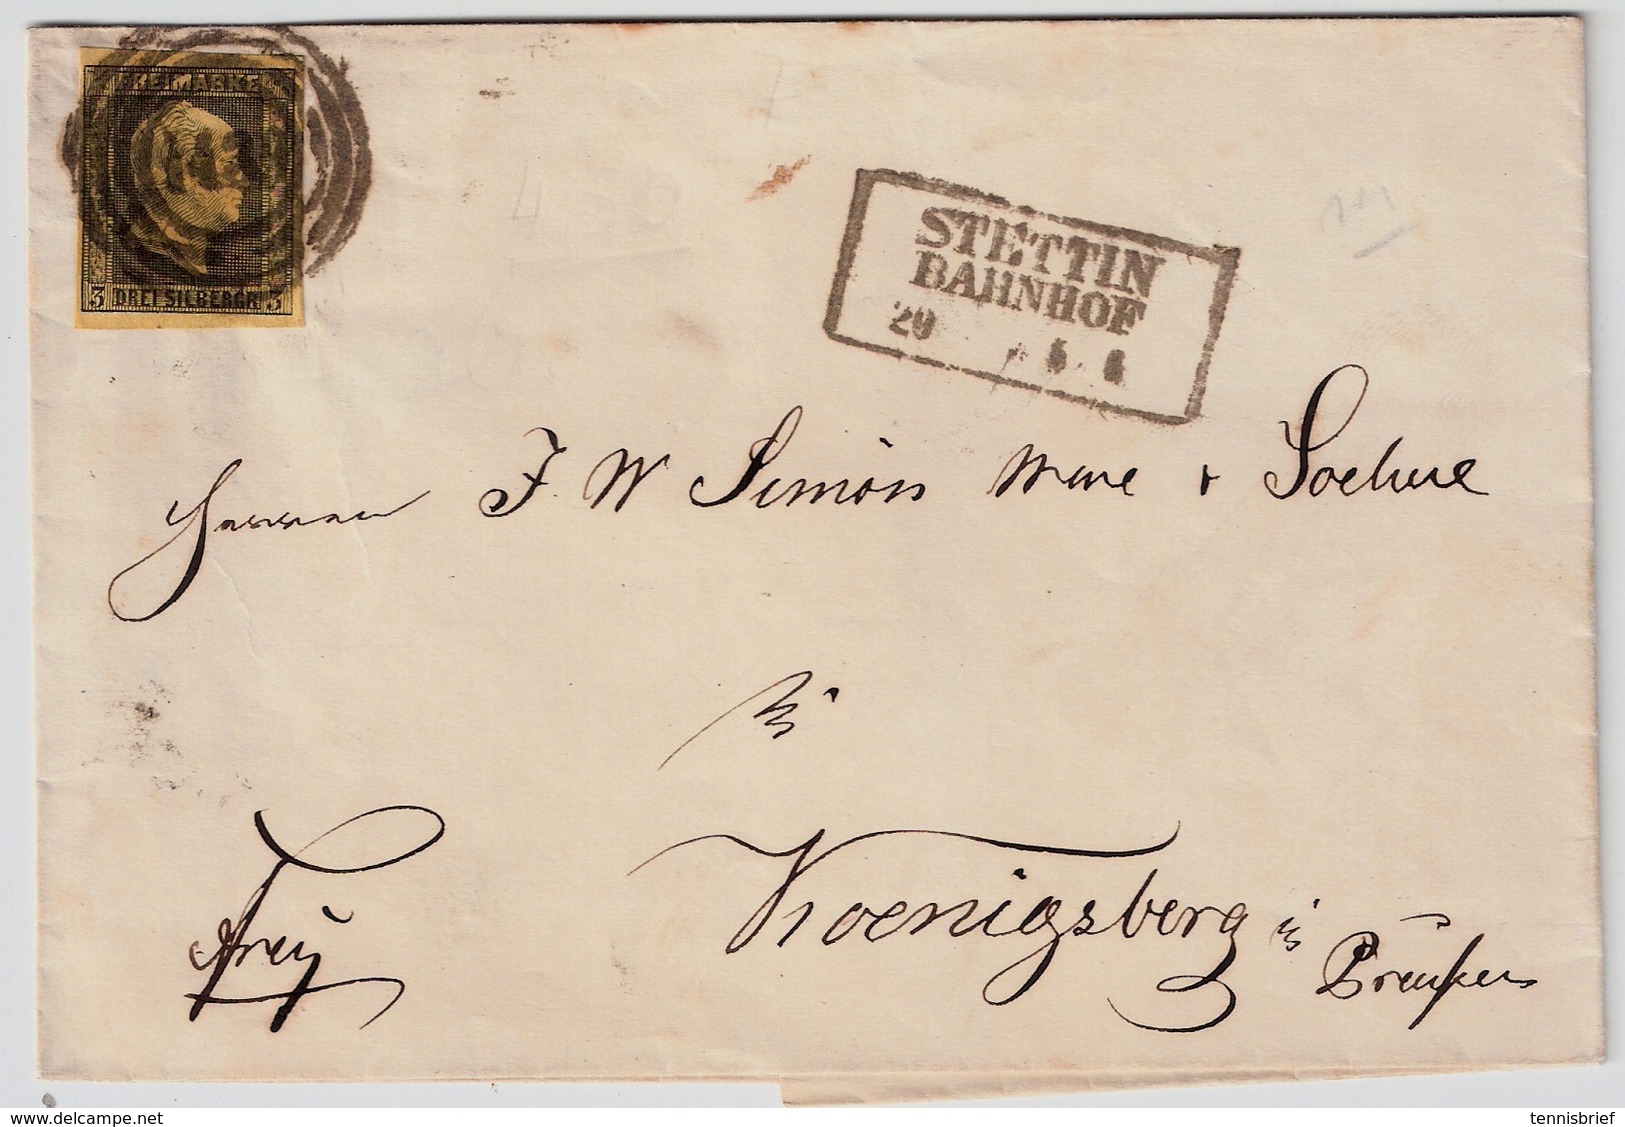 FREIMARKE
3 DREI SILBERGR. 3
STETTIN
BAHNHOF
20
Herren J. W. Simon Wwe & Soehne
in
Frey
Koenigsberg in Preußen
delcampe.net
tennisbrief